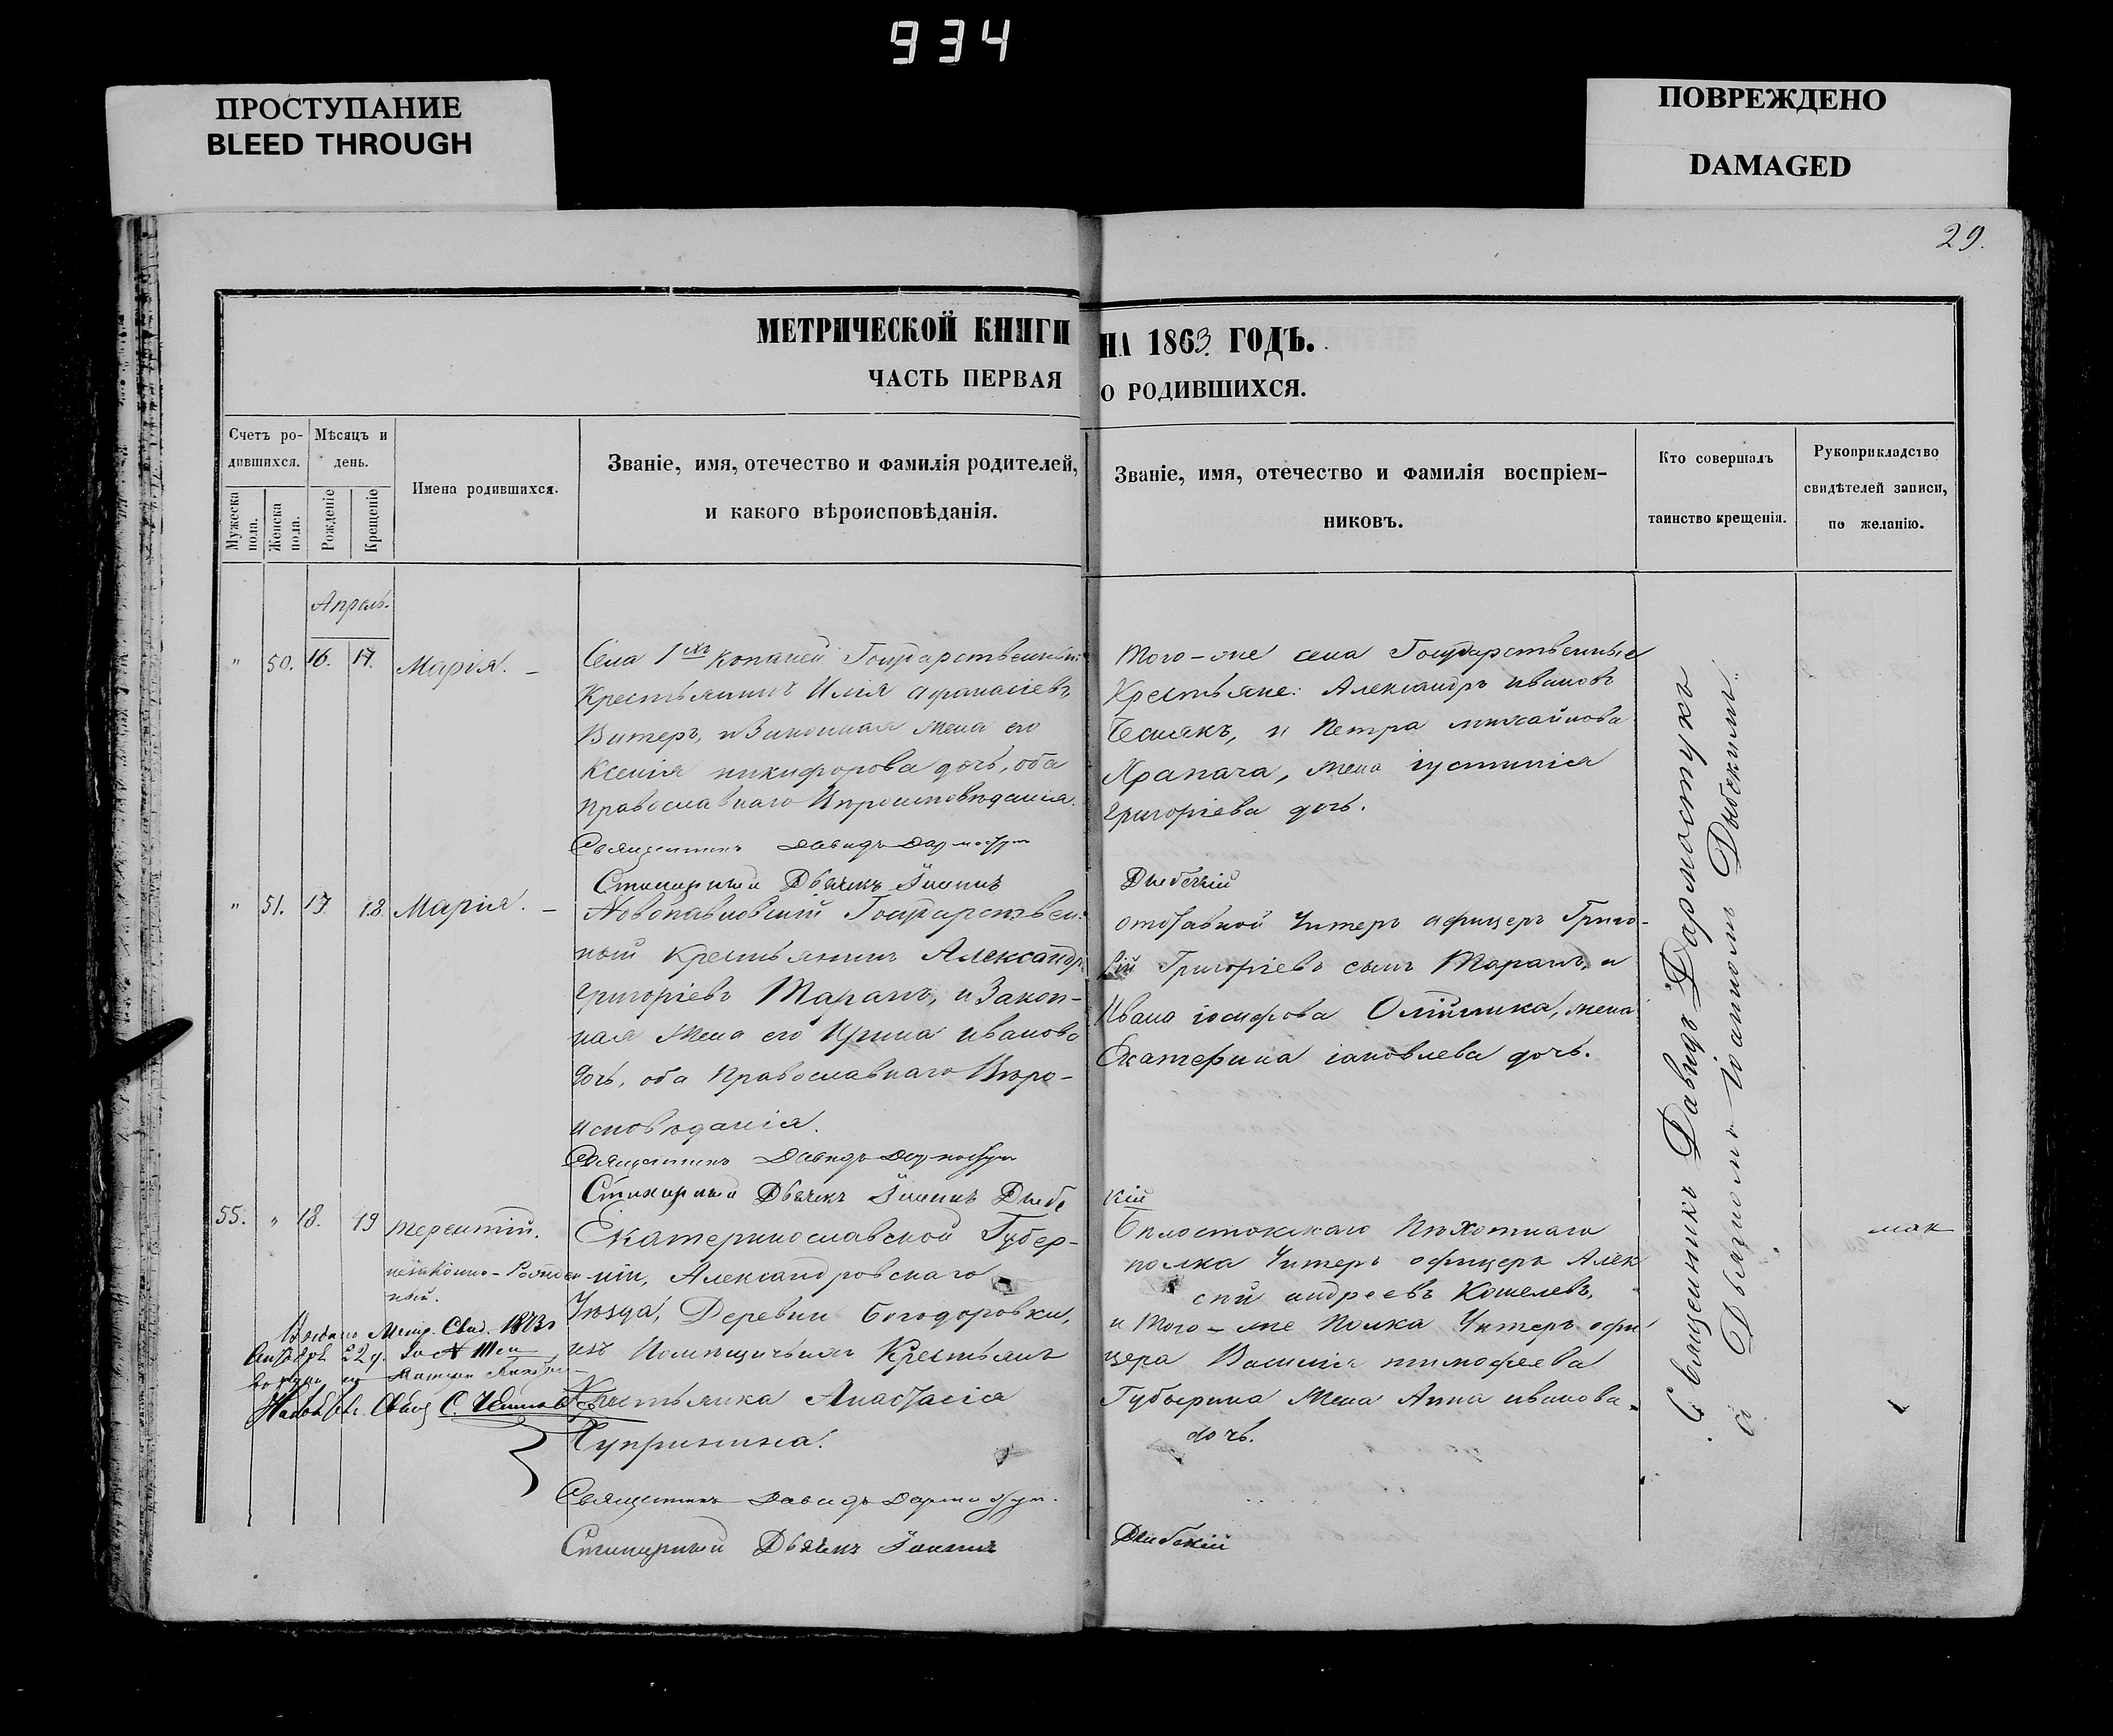 934
ПРОСТУПАНИЕ
BLEED THROUGH
ПОВРЕЖДЕНО
DAMAGED
29.
МЕТРИЧЕСКОЙ КНИГИ НА 1863 ГОДЪ.
ЧАСТЬ ПЕРВАЯ О РОДИВШИХСЯ.
Счетъ ро-
дившихся.
Мужеска
пола.
Женска
пола.
Мѣсяцъ и
день.
Рожденіе
Крещеніе
Имена родившихся.
Званіе, имя, отечество и фамилія родителей,
и какого вѣроисповѣданія.
Званіе, имя, отечество и фамилія воспріем-
никовъ.
Кто совершалъ
таинство крещенія.
Рукоприкладство
свидѣтелей записи,
по желанію.
Апрель.
" 50. 16. 17. Марія. –
Села 1хъ Копаней Государственный
Крестьянинъ Илія Афанасіевъ
Витеръ, и Законная жена его
Ксенія никифорова дочь, оба
православнаго Вѣроисповѣданія.
Священникъ Давидъ Дармостук
Стихарный Дьячекъ Іоаннъ
Того-же села Государственные
Крестьяне: Александръ ивановъ
и Петра михайлова
Храпача, жена іустинія
григоріева дочь.
" 51. 17. 18. Марія. –
Новопавловскій Государствен-
ный Крестьянинъ Александръ
григоріевъ Таранъ, и Закон-
ная жена его Ирина иванова
дочь, оба Православнаго Вѣро-
исповѣданія.
Священникъ Давидъ Дармостук
Стихарный Дьячекъ Іоаннъ
отставной Унтеръ афицеръ Григо-
рій Григоріевъ сынъ Таранъ, и
Ивана іосифова жена
Екатерина іаковлева дочь.
55. " 18. 19 Терентій.
незаконно-Рожден-
ный.
Екатеринославской Губер-
ніи, Александровскаго
Уѣзда, Деревни Богодоровки,
изъ Помѣщичьихъ Крестьянъ
Крестьянка Анастасія
Чупринина.
Священникъ Давидъ Дармостук.
Стихарный Дьячекъ Іоаннъ
Бѣлостокскаго Пѣхотнаго
полка Унтеръ офицеръ Алек
сѣй андреевъ Кошелевъ,
и Того-же Полка Унтеръ офи
цера Василія тимофеева
Губырина жена Анна иванова
дочь.
Выдано Метр. Свид. 1873
22
Священникъ Давидъ Дармостукъ
съ Дьячкомъ Іоанномъ